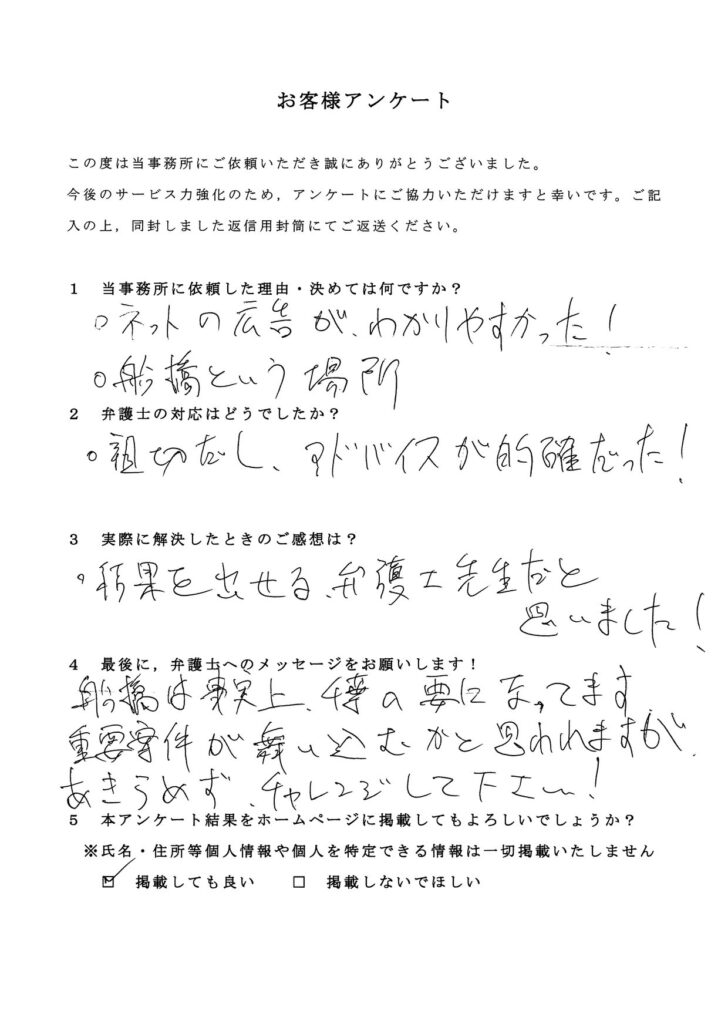 お客様アンケート
この度は当事務所にご依頼いただき誠にありがとうございました。
今後のサービス力強化のため，アンケートにご協力いただけますと幸いです。ご記
入の上，同封しました返信用封筒にてご返送ください。
1 当事務所に依頼した理由・決めては何ですか？
○ネットの広告が、わかりやすかった！
○船橋という場所
2 弁護士の対応はどうでしたか？
○親切だし、アドバイスが的確だった！
3 実際に解決したときのご感想は？
○結果を出せる、弁護士先生だと
思いました！
4 最後に，弁護士へのメッセージをお願いします！
船橋は事実上、千葉の要になってます
重要案件が舞い込むかと思われますが、
あきらめず、チャレンジして下さい！
5 本アンケート結果をホームページに掲載してもよろしいでしょうか？
※氏名・住所等個人情報や個人を特定できる情報は一切掲載いたしません
☑ 掲載しても良い □ 掲載しないでほしい